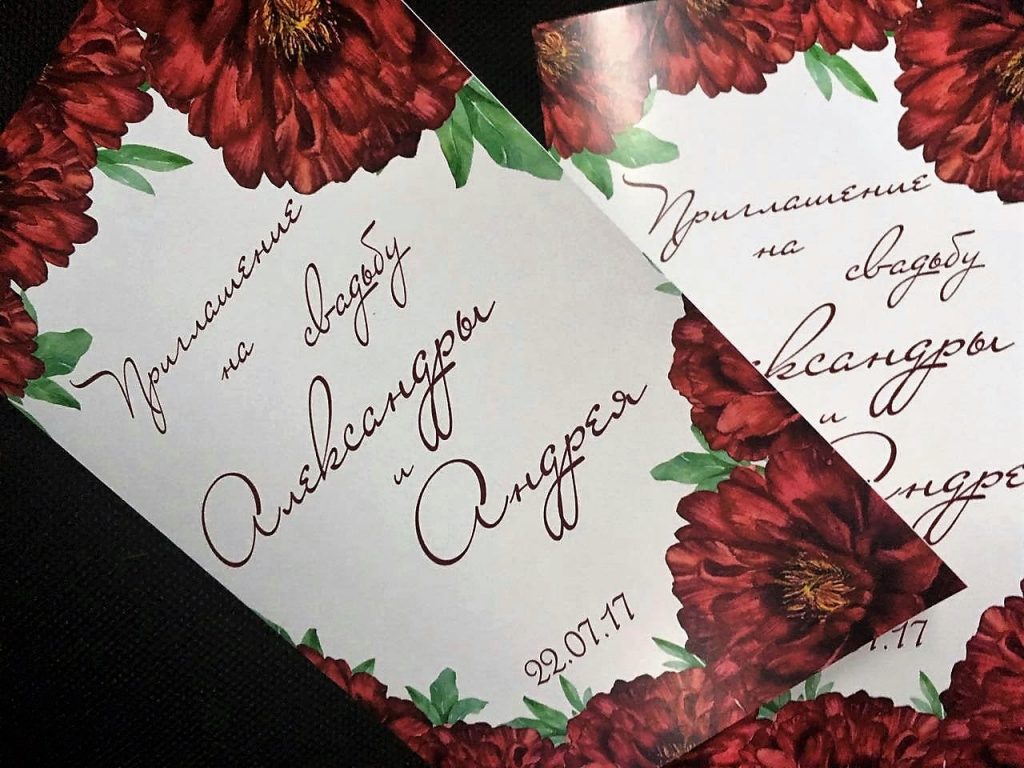 Приглашение
на свадьбу
Александры
и
Андрея
22.07.17
Приглашение
на свадьбу
ександры
и
Андре
7.17